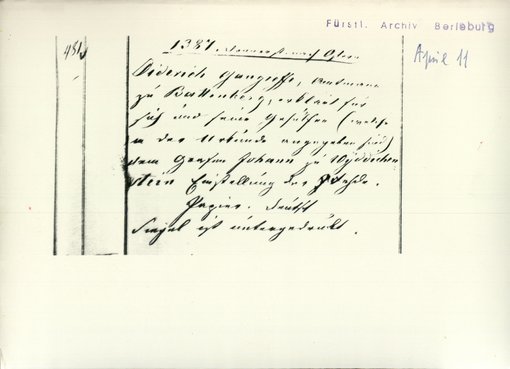 Fürstl. Archiv Berleburg
April 11
451
1387. Donnerst. nach Ostern
Diderich Gangreffe, Amtmann
zu Battenberg, erklärt für
sich und seine Gehülfen (welche
in der Urkunde angegeben sind)
dem Grafen Johann zu Wittchen
stein Einstellung der Fehde.
Papier. Deutsch
Siegel ist untergedruckt.